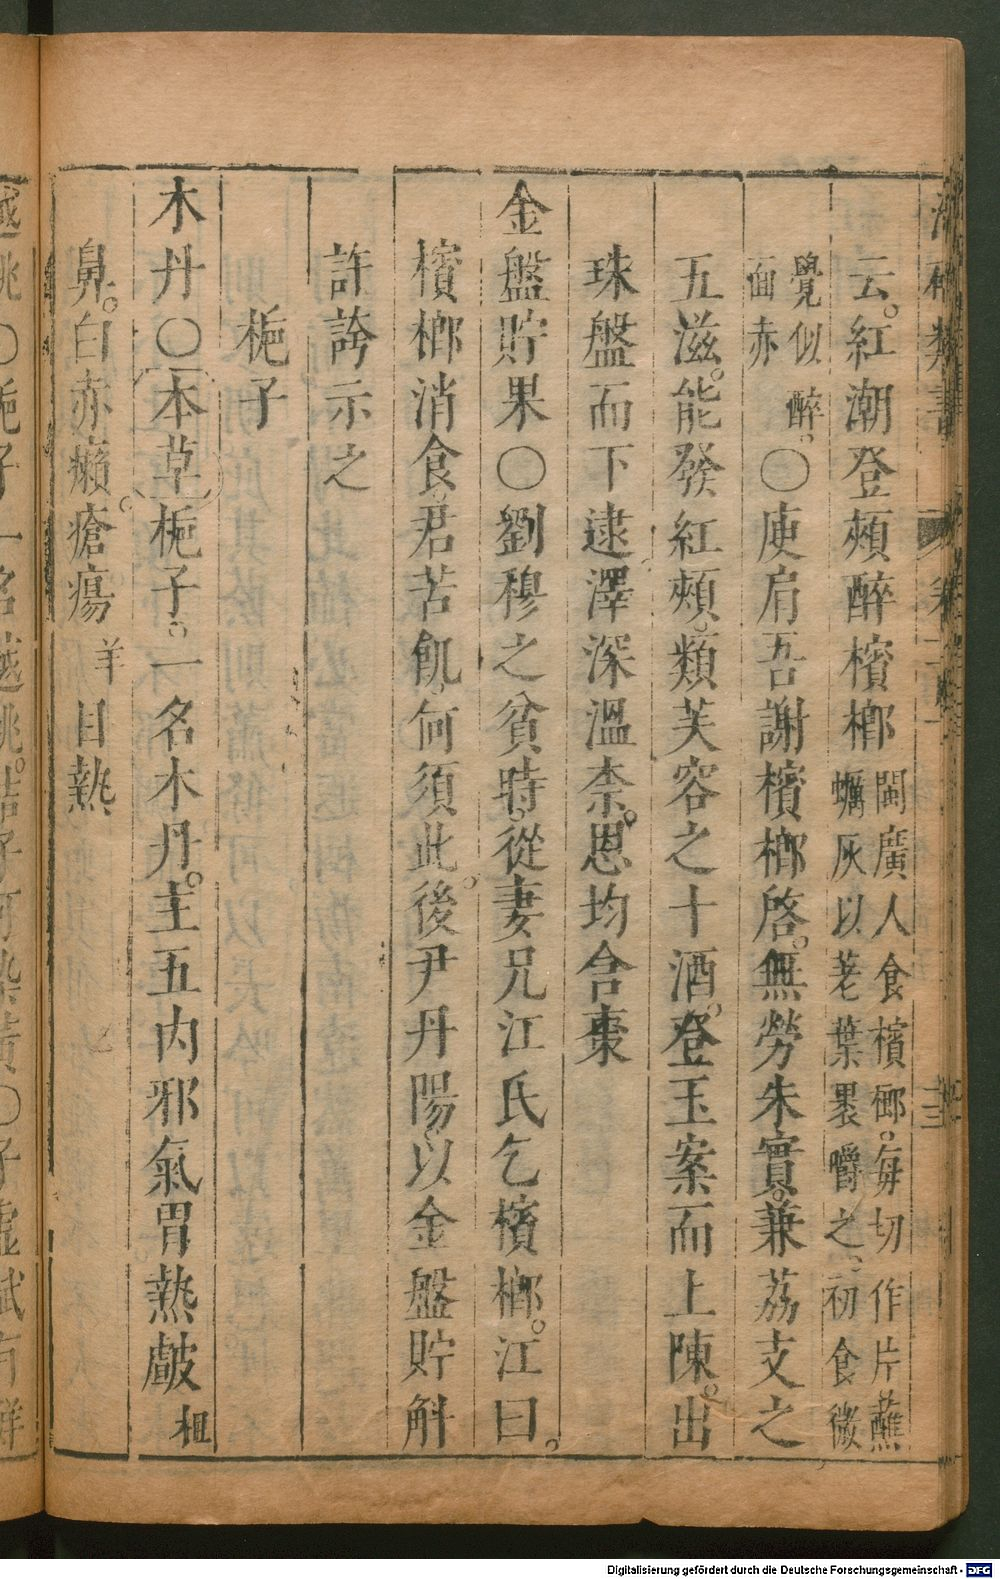 云紅潮登頰醉檳榔閩廣人食檳榔每切作片蘸蠣灰以荖葉裹嚼之初食微
覺似醉面赤〇庾肩吾謝檳榔啓無勞朱實兼荔支之
五滋能發紅頰類芙容之十酒登玉案而上陳出
珠盤而下逮澤深溫柰恩均含棗
金盤貯果〇劉穆之貧時從妻兄江氏乞檳榔江曰
檳榔消食君苦飢何須此後尹丹陽以金盤貯斛
許誇示之
梔子
木丹〇本草梔子一名木丹主五内邪氣胃熱皻柤
鼻白赤癩瘡瘍羊目熱
Digitalisierung gefördert durch die Deutsche Forschungsgemeinschaft - DFG